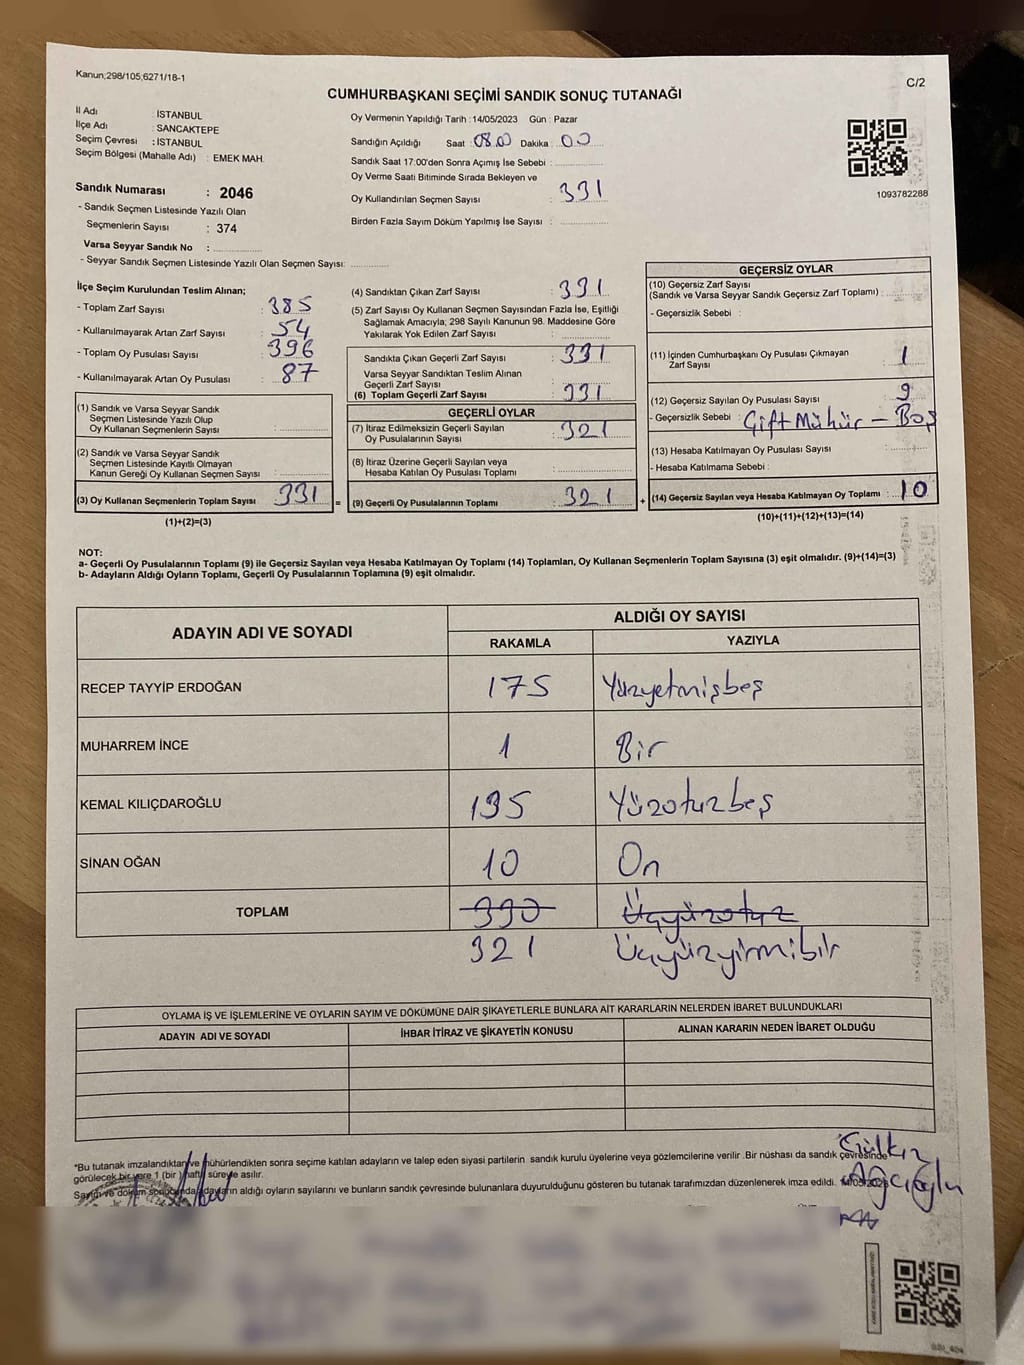 Kanun;298/105;6271/18-1
C/2
CUMHURBAŞKANI SEÇİMİ SANDIK SONUÇ TUTANAĞI
İl Adı : İSTANBUL
İlçe Adı : SANCAKTEPE
Seçim Çevresi : İSTANBUL
Seçim Bölgesi (Mahalle Adı) : EMEK MAH.
Sandık Numarası : 2046
- Sandık Seçmen Listesinde Yazılı Olan
Seçmenlerin Sayısı : 374
Varsa Seyyar Sandık No :
- Seyyar Sandık Seçmen Listesinde Yazılı Olan Seçmen Sayısı:
Oy Vermenin Yapıldığı Tarih : 14/05/2023 Gün : Pazar
Sandığın Açıldığı Saat : 08.00 Dakika : 00
Sandık Saat 17:00'den Sonra Açımış İse Sebebi :
Oy Verme Saati Bitiminde Sırada Bekleyen ve
Oy Kullandırılan Seçmen Sayısı : 331
Birden Fazla Sayım Döküm Yapılmış İse Sayısı :
1093782288
İlçe Seçim Kurulundan Teslim Alınan;
- Toplam Zarf Sayısı : 385
- Kullanılmayarak Artan Zarf Sayısı : 54
- Toplam Oy Pusulası Sayısı : 396
- Kullanılmayarak Artan Oy Pusulası : 87
(1) Sandık ve Varsa Seyyar Sandık
Seçmen Listesinde Yazılı Olup
Oy Kullanan Seçmenlerin Sayısı :
(2) Sandık ve Varsa Seyyar Sandık
Seçmen Listesinde Kayıtlı Olmayan
Kanun Gereği Oy Kullanan Seçmen Sayısı :
(3) Oy Kullanan Seçmenlerin Toplam Sayısı : 331 =
(1)+(2)=(3)
(4) Sandıktan Çıkan Zarf Sayısı : 331
(5) Zarf Sayısı Oy Kullanan Seçmen Sayısından Fazla İse, Eşitliği
Sağlamak Amacıyla; 298 Sayılı Kanunun 98. Maddesine Göre
Yakılarak Yok Edilen Zarf Sayısı :
Sandıkta Çıkan Geçerli Zarf Sayısı : 331
Varsa Seyyar Sandıktan Teslim Alınan
Geçerli Zarf Sayısı :
(6) Toplam Geçerli Zarf Sayısı : 331
GEÇERLİ OYLAR
(7) İtiraz Edilmeksizin Geçerli Sayılan
Oy Pusulalarının Sayısı : 321
(8) İtiraz Üzerine Geçerli Sayılan veya
Hesaba Katılan Oy Pusulası Toplamı :
(9) Geçerli Oy Pusulalarının Toplamı : 321 +
GEÇERSİZ OYLAR
(10) Geçersiz Zarf Sayısı
(Sandık ve Varsa Seyyar Sandık Geçersiz Zarf Toplamı) :
- Geçersizlik Sebebi :
(11) İçinden Cumhurbaşkanı Oy Pusulası Çıkmayan
Zarf Sayısı : 1
(12) Geçersiz Sayılan Oy Pusulası Sayısı : 9
- Geçersizlik Sebebi : Çift Mühür - Boş
(13) Hesaba Katılmayan Oy Pusulası Sayısı :
- Hesaba Katılmama Sebebi :
(14) Geçersiz Sayılan veya Hesaba Katılmayan Oy Toplamı : 10
(10)+(11)+(12)+(13)=(14)
NOT:
a- Geçerli Oy Pusulalarının Toplamı (9) ile Geçersiz Sayılan veya Hesaba Katılmayan Oy Toplamı (14) Toplamları, Oy Kullanan Seçmenlerin Toplam Sayısına (3) eşit olmalıdır. (9)+(14)=(3)
b- Adayların Aldığı Oyların Toplamı, Geçerli Oy Pusulalarının Toplamına (9) eşit olmalıdır.
ADAYIN ADI VE SOYADI ALDIĞI OY SAYISI
RAKAMLA YAZIYLA
RECEP TAYYİP ERDOĞAN 175 Yüzyetmişbeş
MUHARREM İNCE 1 Bir
KEMAL KILIÇDAROĞLU 135 Yüzotuzbeş
SİNAN OĞAN 10 On
TOPLAM 330 Üçyüzotuz
321 Üçyüzyirmibir
OYLAMA İŞ VE İŞLEMLERİNE VE OYLARIN SAYIM VE DÖKÜMÜNE DAİR ŞİKAYETLERLE BUNLARA AİT KARARLARIN NELERDEN İBARET BULUNDUKLARI
ADAYIN ADI VE SOYADI İHBAR İTİRAZ VE ŞİKAYETİN KONUSU ALINAN KARARIN NEDEN İBARET OLDUĞU
*Bu tutanak imzalandıktan ve mühürlendikten sonra seçime katılan adayların ve talep eden siyasi partilerin sandık kurulu üyelerine veya gözlemcilerine verilir .Bir nüshası da sandık çevresinde
görülecek bir yere 1 (bir ) hafta süreyle asılır.
Sayım ve döküm sonucunda adayların aldığı oyların sayılarını ve bunların sandık çevresinde bulunanlara duyurulduğunu gösteren bu tutanak tarafımızdan düzenlenerek imza edildi.
Gülkız
Ağcıoğlu